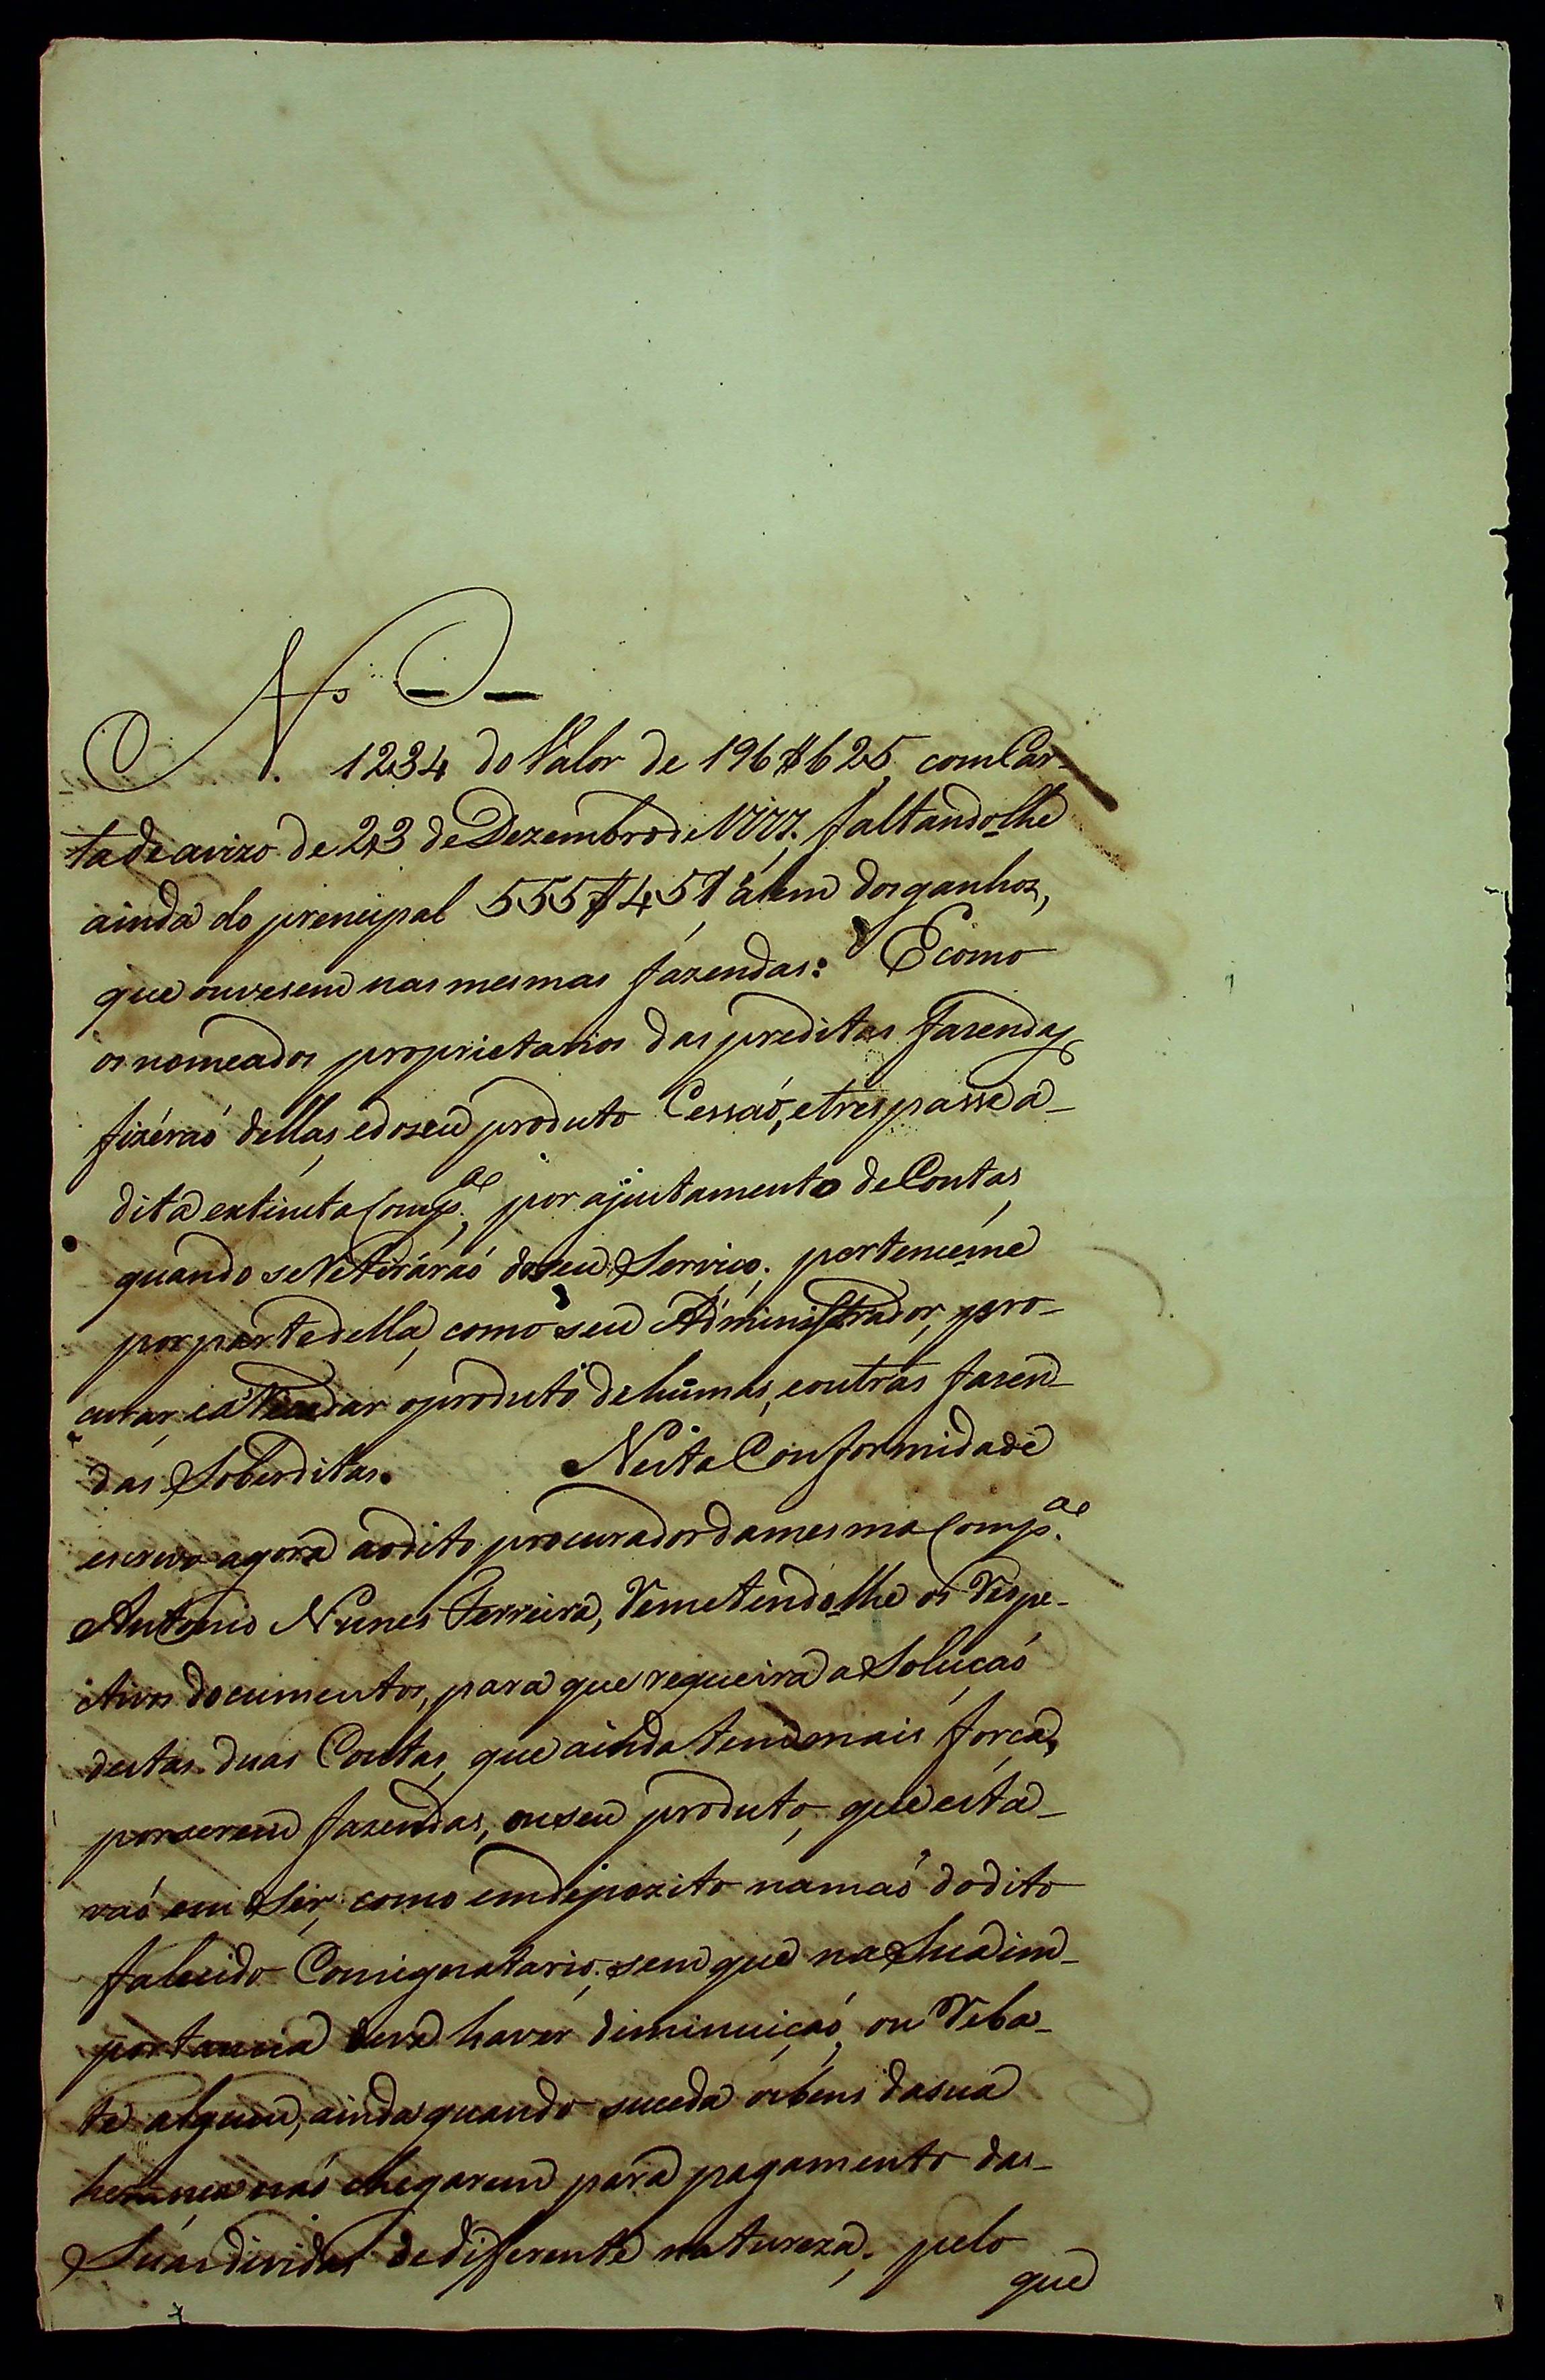 N.º 1234 do Valor de 196$625, com Car-
ta de avizo de 23 de Dezembro de 1777. faltando lhe
ainda do prencipal 555$451 álem dos ganhos,
que ouvesem nas mesmas fazendas: E como
os nomeados proprietarios das preditas fazendas
fizéraó dellas, e do seu produto Cessaó, e trespasse á
dita extincta Comp.ª, por ajustamento de Contas,
quando se Retiráraó do seu Serviço; pertenceme
por parte della, como seu Administrador, pro-
curar, e aRecadar o produto de humas, e outras fazen-
das Soberditas. Nesta Conformidade
escrevo agora ao dito procurador da mesma Comp.ª
Antonio Nunes Ferreira, Remetendo lhe os Respe-
ctivos documentos, para que requeira a Soluçaó
destas duas Contas, que ainda tem mais força,
por serem fazendas, ou seu produto, que esta-
vaó em Ser, como em depozito na maó do dito
falecido Consignatario, sem que na Sua im-
portancia deva haver diminuiçaó, ou Reba-
te algum, ainda quando suceda os bens da sua
herança naó chegarem para pagamento das
Suas dividas de differente natureza; pelo
que